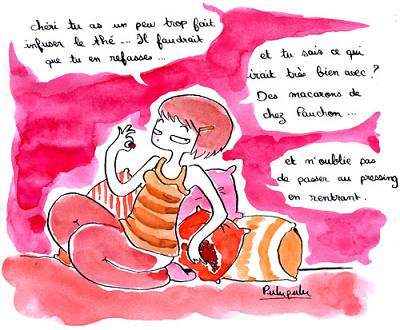 chéri tu as un peu trop fait
infuser le thé ... Il faudrait
que tu en refasses ...
et tu sais ce qui
irait très bien avec ?
Des macarons de
chez Pauchon ...
et n'oublie pas
de passer au pressing
en rentrant.
Pulupulu